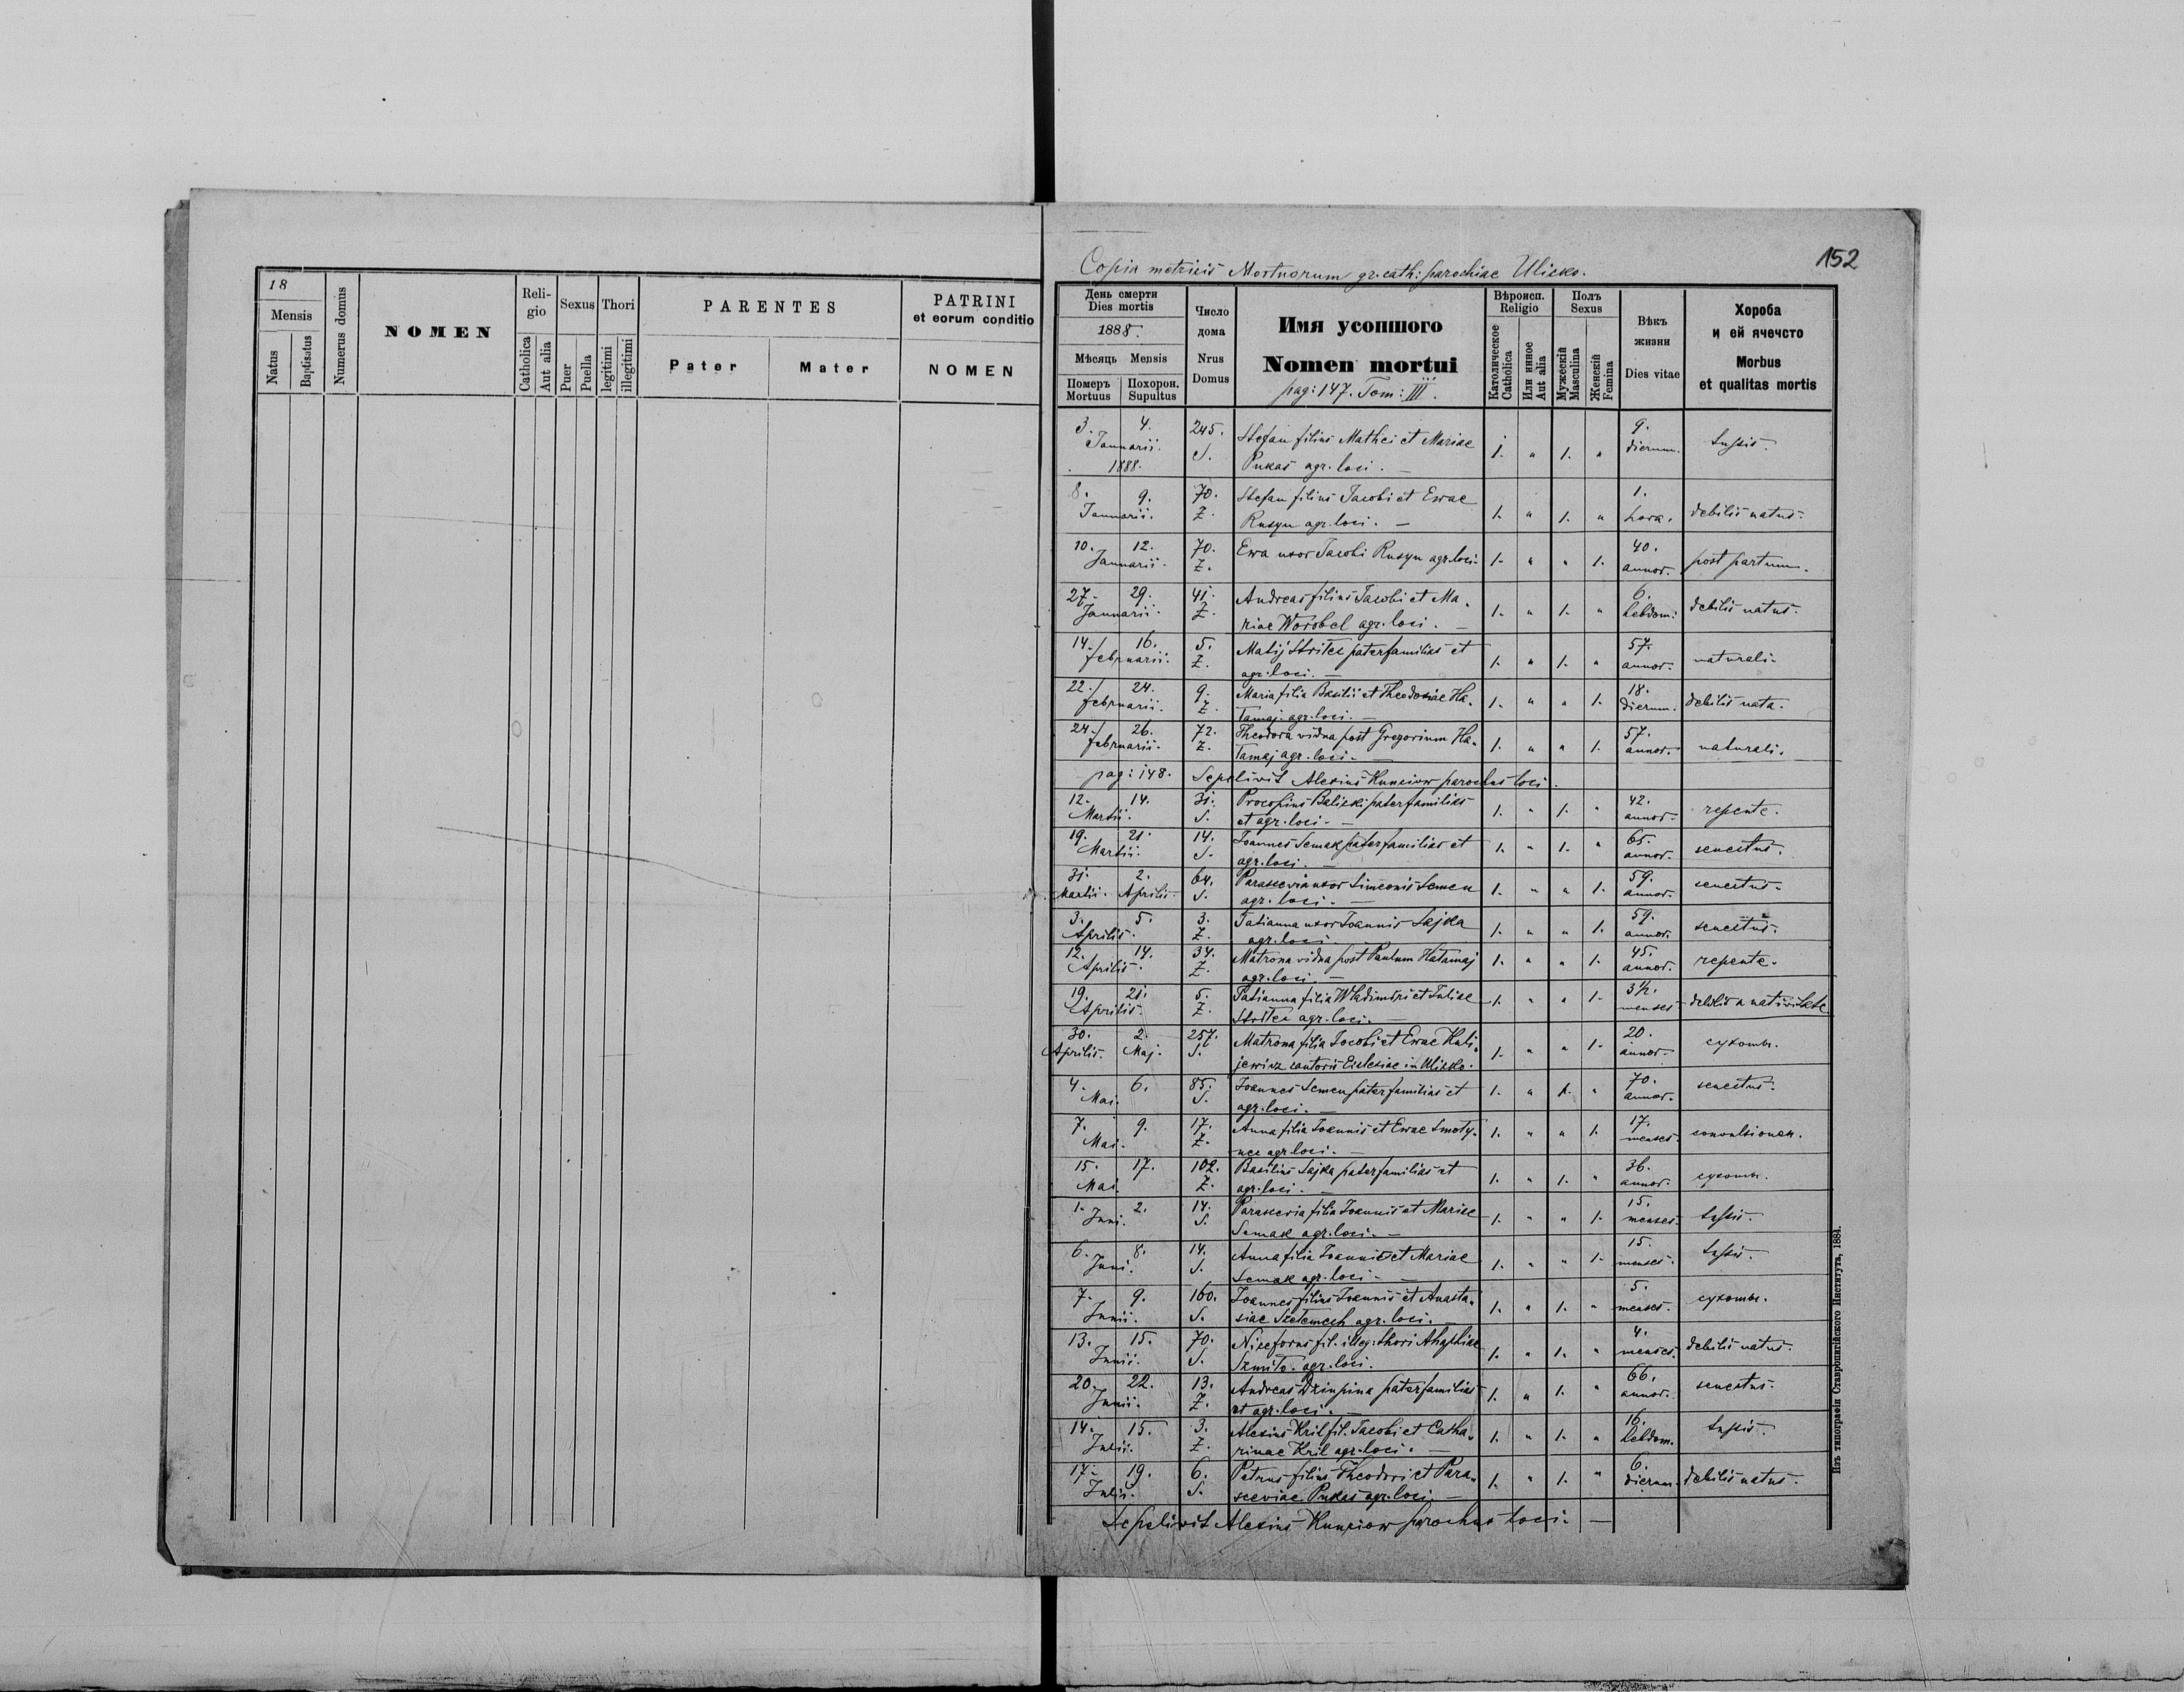 18
Mensis
Natus
Baptisatus
Numerus domus
NOMEN
Reli-
gio
Catholica
Aut alia
Sexus
Puer
Puella
Thori
legitimi
illegitimi
PARENTES
Pater
Mater
PATRINI
et eorum conditio
NOMEN
152
Copia metricis Mortuorum gr. cath: parochiae Ulicko.
День смерти
Dies mortis
1888.
Мѣсяць Mensis
Померъ
Mortuus
Похорон.
Supultus
Число
дома
Nrus
Domus
Имя усопшого
Nomen mortui
pag: 147. Tom: III.
Вѣроисп.
Religio
Католическое
Catholica
Или инное
Aut alia
Полъ
Sexus
Мужескій
Masculina
Женскій
Femina
Вѣкъ
жизни
Dies vitae
Хороба
и ей ячечсто
Morbus
et qualitas mortis
3. 4. 245. Stefan filius Mathei et Mariae 9.
Januarii. S. Pukas agr. loci. — 1. " 1. " dierum. tussis.
1888.
8. 9. 70. Stefan filius Jacobi et Ewae 1.
Januarii. Z. Rusyn agr. loci. — 1. " 1. " hora. debilis natus.
10. 12. 70. Ewa uxor Jacobi Rusyn agr. loci. 40.
Januarii. Z. 1. " " 1. annor. post partum.
27. 29. 41. Andreas filius Jacobi et Ma- 6.
Januarii. Z. riae Worobel agr. loci. — 1. " 1. " hebdom. debilis natus.
14. 16. 5. Matij paterfamilias et 57.
februarii. Z. agr. loci. — 1. " 1. " annor. naturali.
22. 24. 9. Maria filia Basilii et Theodosiae Ha- 18.
februarii. Z. tamaj. agr. loci. — 1. " " 1. dierum. debilis nata.
24. 26. 72. Theodora vidua post Gregorium Ha- 57.
februarii. Z. tamaj agr. loci. — 1. " " 1. annor. naturali.
pag: 148. Sepelivit Alexius Kunciow parochus loci.
12. 14. 31. Procopius paterfamilias 42.
Martii. S. et agr. loci. — 1. " 1. " annor. repente.
19. 21. 14. Joannes Semak paterfamilias et 65.
Martii. S. agr. loci. — 1. " 1. " annor. senectus.
31. 2. 64. Parascevia uxor Simeonis Semen 59.
Martii. Aprilis. S. agr. loci. — 1. " " 1. annor. senectus.
3. 5. 3. Tatianna uxor Joannis Sajka 59.
Aprilis. Z. agr. loci. 1. " " 1. annor. senectus.
12. 14. 34. Matrona vidua post Paulum Hatamaj 45.
Aprilis. Z. agr. loci. — 1. " " 1. annor. repente.
19. 21. 5. Tatianna filia Wladimiri et Juliae 3½.
Aprilis. Z. agr. loci. — 1. " " 1. menses debilis a nativitate
30. 2. 257. Matrona filia Jacobi et Ewae Kuli- 20.
Aprilis. Maj. S. jewicz cantoris Ecclesiae in Ulicko. 1. " " 1. annor. сухоты.
4. 6. 85. Joannes Semen paterfamilias et 70.
Mai. S. agr. loci. — 1. " 1. " annor. senectus.
7. 9. 17. Anna filia Joannis et Ewae Smoty- 17.
Mai. Z. agr. loci. — 1. " " 1. menses.
15. 17. 102. Basilius Sajka paterfamilias et 36.
Mai. Z. agr. loci. — 1. " 1. " annor. сухоты.
1. 2. 14. Parascevia filia Joannis et Mariae 15.
Juni. S. Semak agr. loci. — 1. " " 1. menses. tussis.
6. 8. 14. Anna filia Joannis et Mariae 15.
Juni. S. Semak agr. loci. — 1. " " 1. menses. tussis.
7. 9. 160. Joannes filius Joannis et Anasta- 5.
Junii. S. siae Szelemech agr. loci. — 1. " 1. " menses. сухоты.
13. 15. 70. Niceforus fil. illeg. thori Ahaphiae 4.
Junii. S. agr. loci. 1. " 1. " menses. debilis natus.
20. 22. 13. Andreas Dziupina paterfamilias 66.
Junii. Z. et agr. loci. — 1. " 1. " annor. senectus.
14. 15. 3. Alexius Kril fil. Jacobi et Catha- 16.
Julii. Z. rinae Kril agr. loci. — 1. " 1. " hebdom. tussis.
17. 19. 6. Petrus filius Theodori et Para- 6.
Julii. S. sceviae Pukas agr. loci. — 1. " 1. " dierum. debilis natus.
Sepelivit Alexius Kunciow parochus loci. —
Изъ типографіи Ставропигійского Института, 1884.